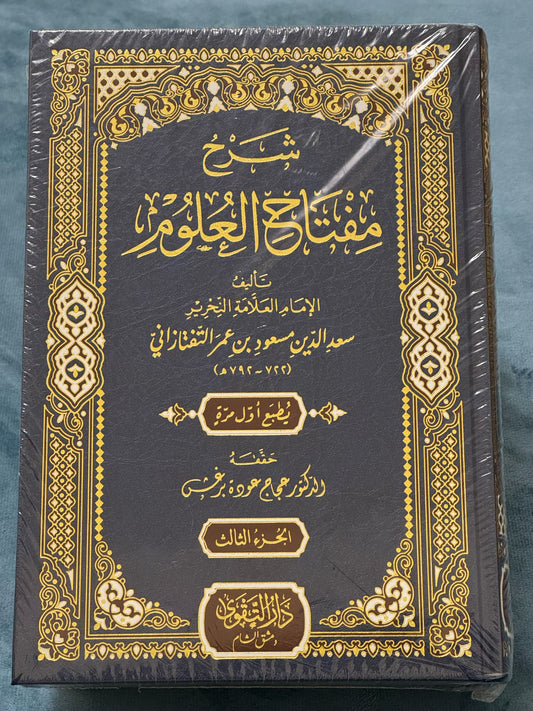 شَرْحُ
مِفْتَاحِ العُلُومِ
تَأليفُ
الإمَامِ العَلَّامَةِ النِّحْرِيرِ
سعد الدّين مسعود بن عمر التّفتازانيّ
(٧٢٢ - ٧٩٢ هـ)
يُطبَع أوّل مرّة
حَقّقَهُ
الدكتور عجاج عودة برغش
الجزء الثالث
دَارُ التَّقْوَىٰ
دمشق الشام